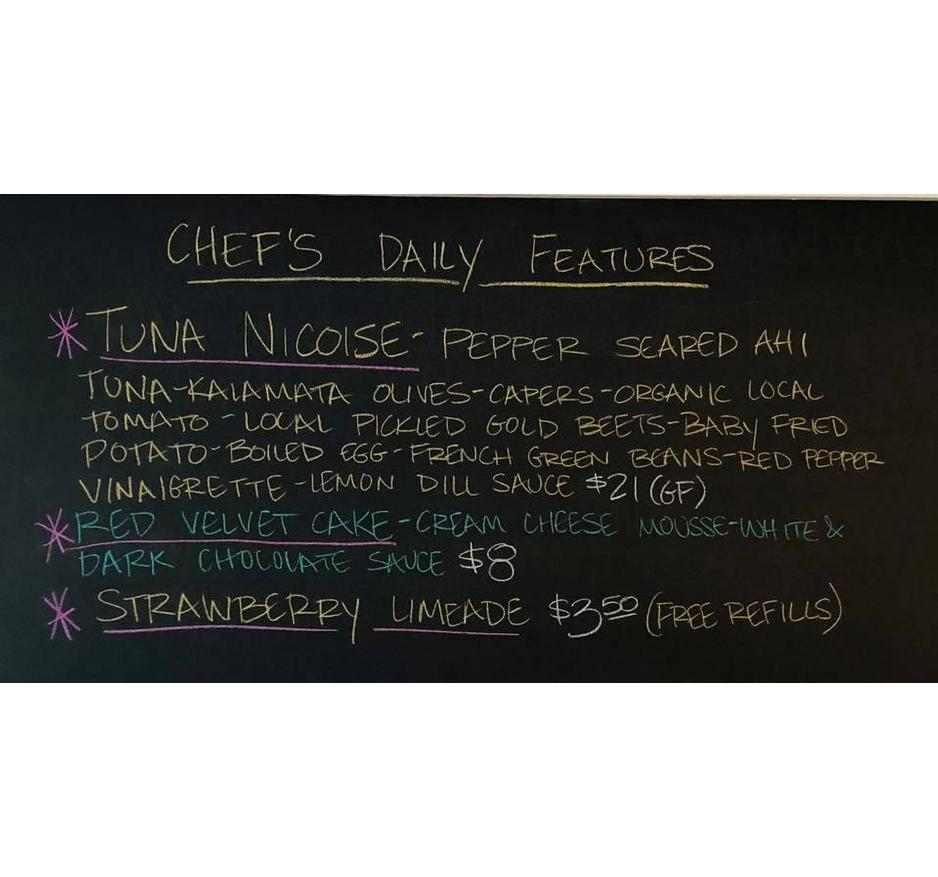 CHEF'S DAILY FEATURES
* TUNA NICOISE - PEPPER SEARED AHI
TUNA-KALAMATA OLIVES-CAPERS-ORGANIC LOCAL
TOMATO-LOCAL PICKLED GOLD BEETS-BABY FRIED
POTATO-BOILED EGG-FRENCH GREEN BEANS-RED PEPPER
VINAIGRETTE-LEMON DILL SAUCE $21 (GF)
* RED VELVET CAKE-CREAM CHEESE MOUSSE-WHITE &
DARK CHOCOLATE SAUCE $8
* STRAWBERRY LIMEADE $3.50 (FREE REFILLS)